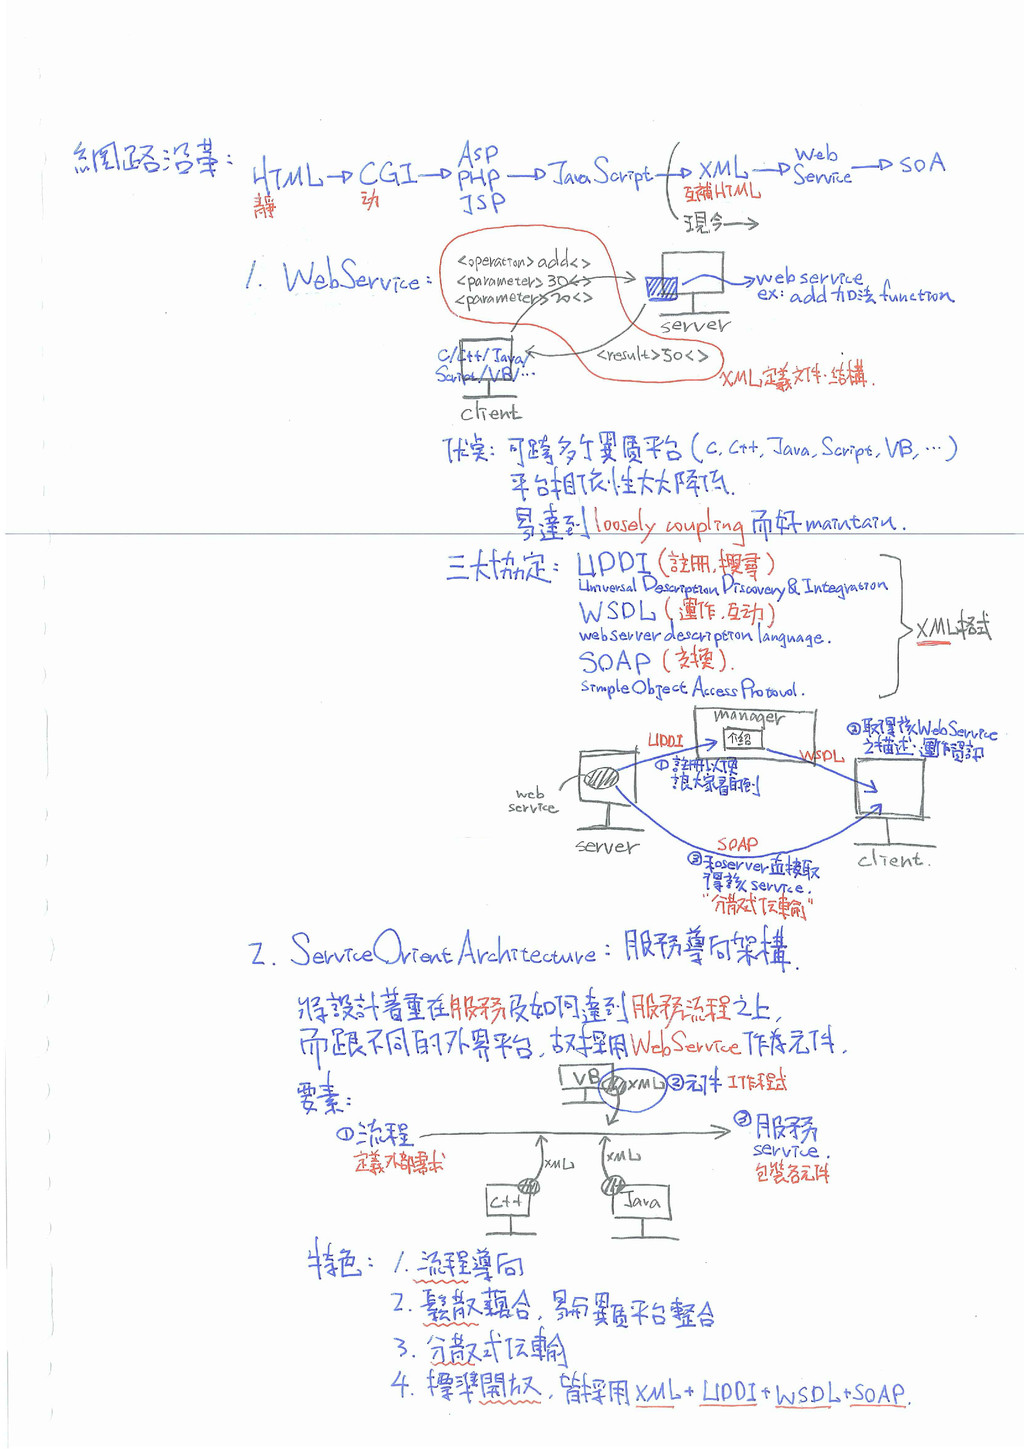 網路沿革:
HTML → CGI → ASP PHP JSP → JavaScript → XML → Web Service → SOA
靜 動 互補HTML
現今 →
1. WebService:
<operation>add<>
<parameter>30<>
<parameter>20<>
web service
ex: add 加法function
server
<result>50<>
C/C++/Java/
Script/VB/…
client
XML定義文件、結構.
優點: 可跨多个異質平台 (C, C++, Java, Script, VB, …)
平台相依性大大降低.
易達到loosely coupling而好maintain.
三大協定: UDDI (註冊,搜尋)
Universal Description Discovery & Integration
WSDL (運作,互动)
webserver description language.
SOAP (交換).
Simple Object Access Protocol.
XML格式
manager
介紹
UDDI
①註冊以便
讓大家看的到
WSDL
②取得該WebService
之描述、運作資訊
web
service
server
client.
SOAP
③和server直接取
得該service.
"分散式伝輸"
2. Service Orient Architecture: 服務導向架構.
將設計著重在服務及如何達到服務流程之上,
而跟不同的外界平台,故採用WebService作為元件.
要素:
VB XML ②元件 工作程式
①流程
定義外部需求
③服務
service.
包裝各元件
XML XML
C++ Java
特色: 1. 流程導向
2. 鬆散藕合,易於異質平台整合
3. 分散式伝輸
4. 標準開放,皆採用XML+UDDI+WSDL+SOAP.